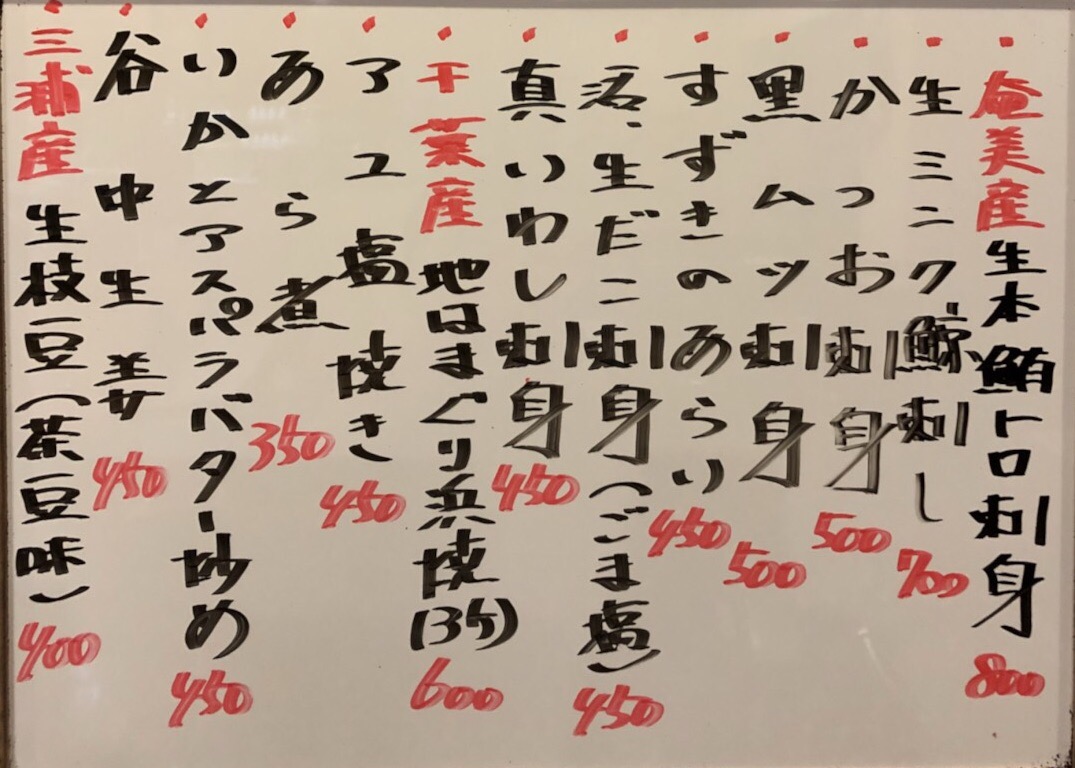 奄美産生本鮪トロ刺身 800
生ミンク鯨刺し 700
かつお刺身 500
黒ムツ刺身 500
すずきのあらい 450
活、生だこ刺身(ごま塩) 450
真いわし刺身 450
千葉産 地はまぐり浜焼(3ケ) 600
アユ塩焼き 450
あら煮 350
いかとアスパラバター炒め 450
谷中生姜 450
三浦産 生枝豆(茶豆味) 400